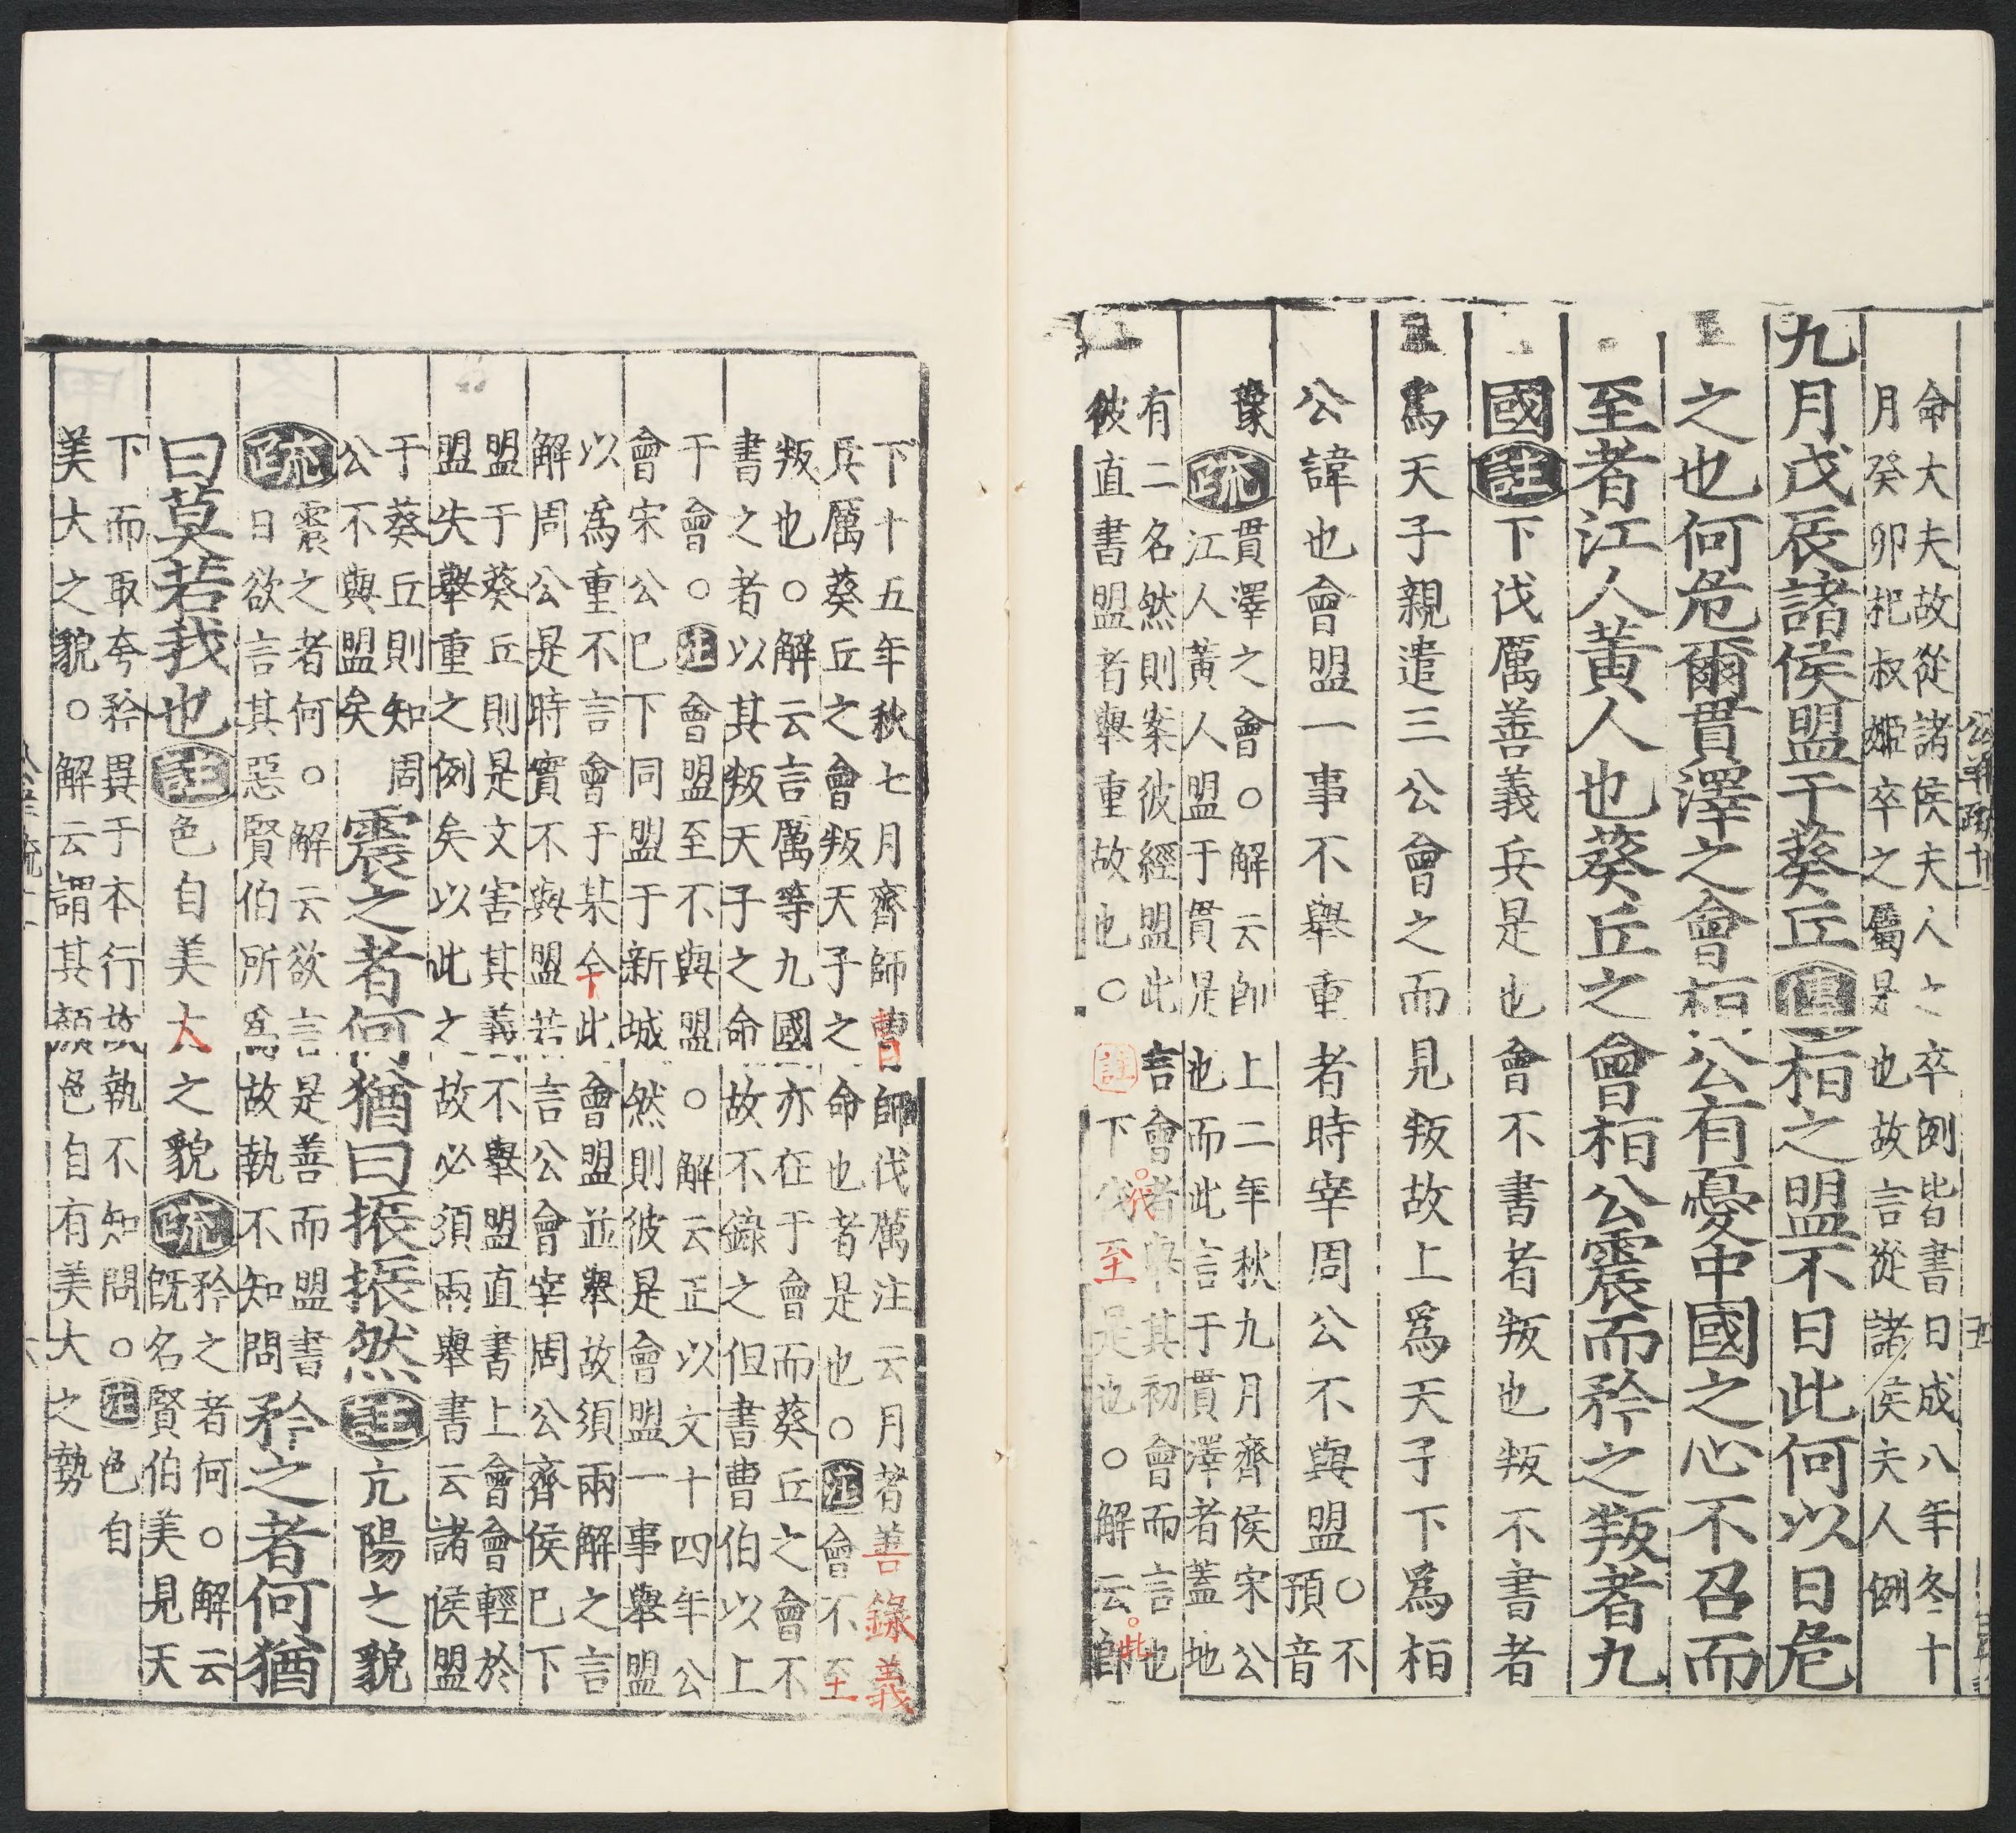 命大夫故從諸侯夫人之卒例皆書日成八年冬十
月癸卯杞叔姬卒之屬是也故言從諸侯夫人例
九月戊辰諸侯盟于葵丘傳桓之盟不日此何以日危
之也何危爾貫澤之會桓公有憂中國之心不召而
至者江人黃人也葵丘之會桓公震而矜之叛者九
國註下伐厲善義兵是也會不書者叛也叛不書者
為天子親遣三公會之而見叛故上為天子下為桓
公諱也會盟一事不舉重者時宰周公不與盟○不
預音
豫疏貫澤之會○解云即上二年秋九月齊侯宋公
江人黃人盟于貫是也而此言于貫澤者蓋地
有二名然則案彼經盟此言會者舉其初會而言也
彼直書盟者舉重故也○註下伐至是也○解云即
下十五年秋七月齊師曹師伐厲注云月者善錄義
兵厲葵丘之會叛天子之命也者是也○注會不至
叛也○解云言厲等九國亦在于會而葵丘之會不
書之者以其叛天子之命故不錄之但書曹伯以上
于會○注會盟至不與盟○解云正以文十四年公
會宋公已下同盟于新城然則彼是會盟一事舉盟
以為重不言會于某今此會盟並舉故須兩解之言
解周公是時實不與盟若言公會宰周公齊侯已下
盟于葵丘則是文害其義不舉盟直書上會會輕於
盟失舉重之例矣以此之故必須兩舉書云諸侯盟
于葵丘則知周
公不與盟矣震之者何猶曰振振然註亢陽之貌
疏震之者何○解云欲言是善而盟書
日欲言其惡賢伯所為故執不知問矜之者何猶
曰莫若我也註色自美大之貌疏矜之者何○解云
既名賢伯美見天
下而取夸矜異于本行故執不知問○注色自
美大之貌○解云謂其顏色自有美大之勢